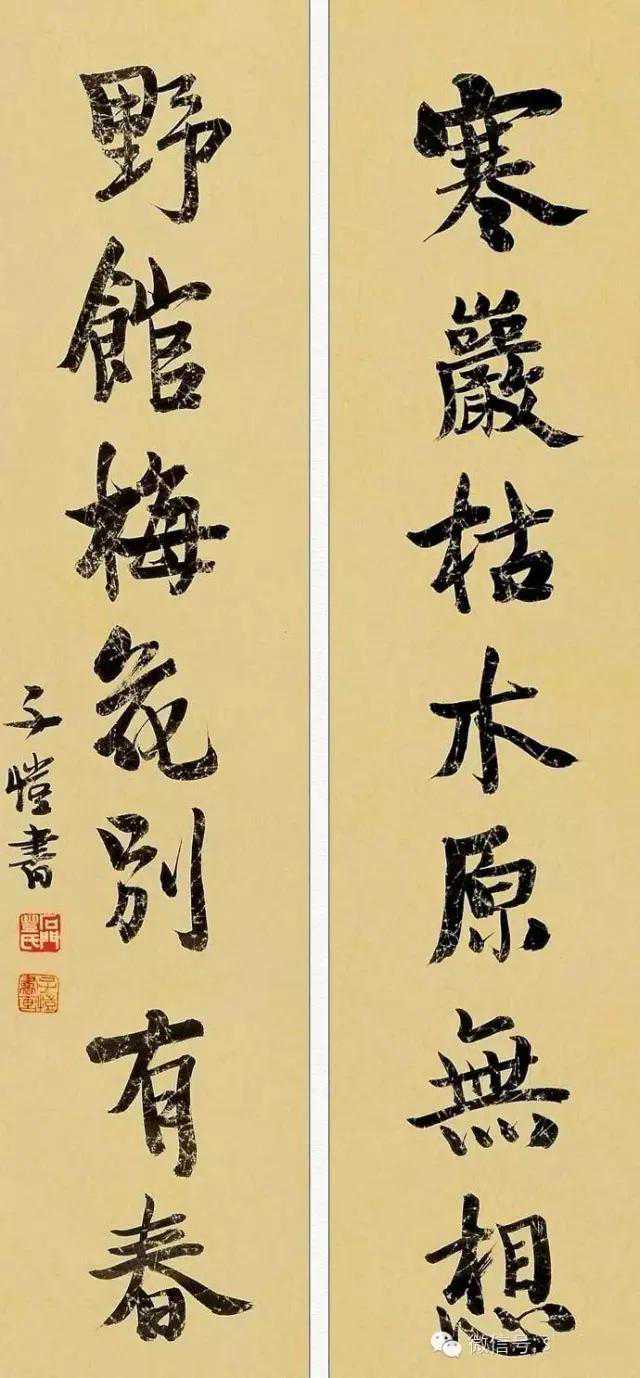 寒巖枯木原無想
野館梅花別有春
子愷書
石門豐氏
子愷書畫
微信号: 3